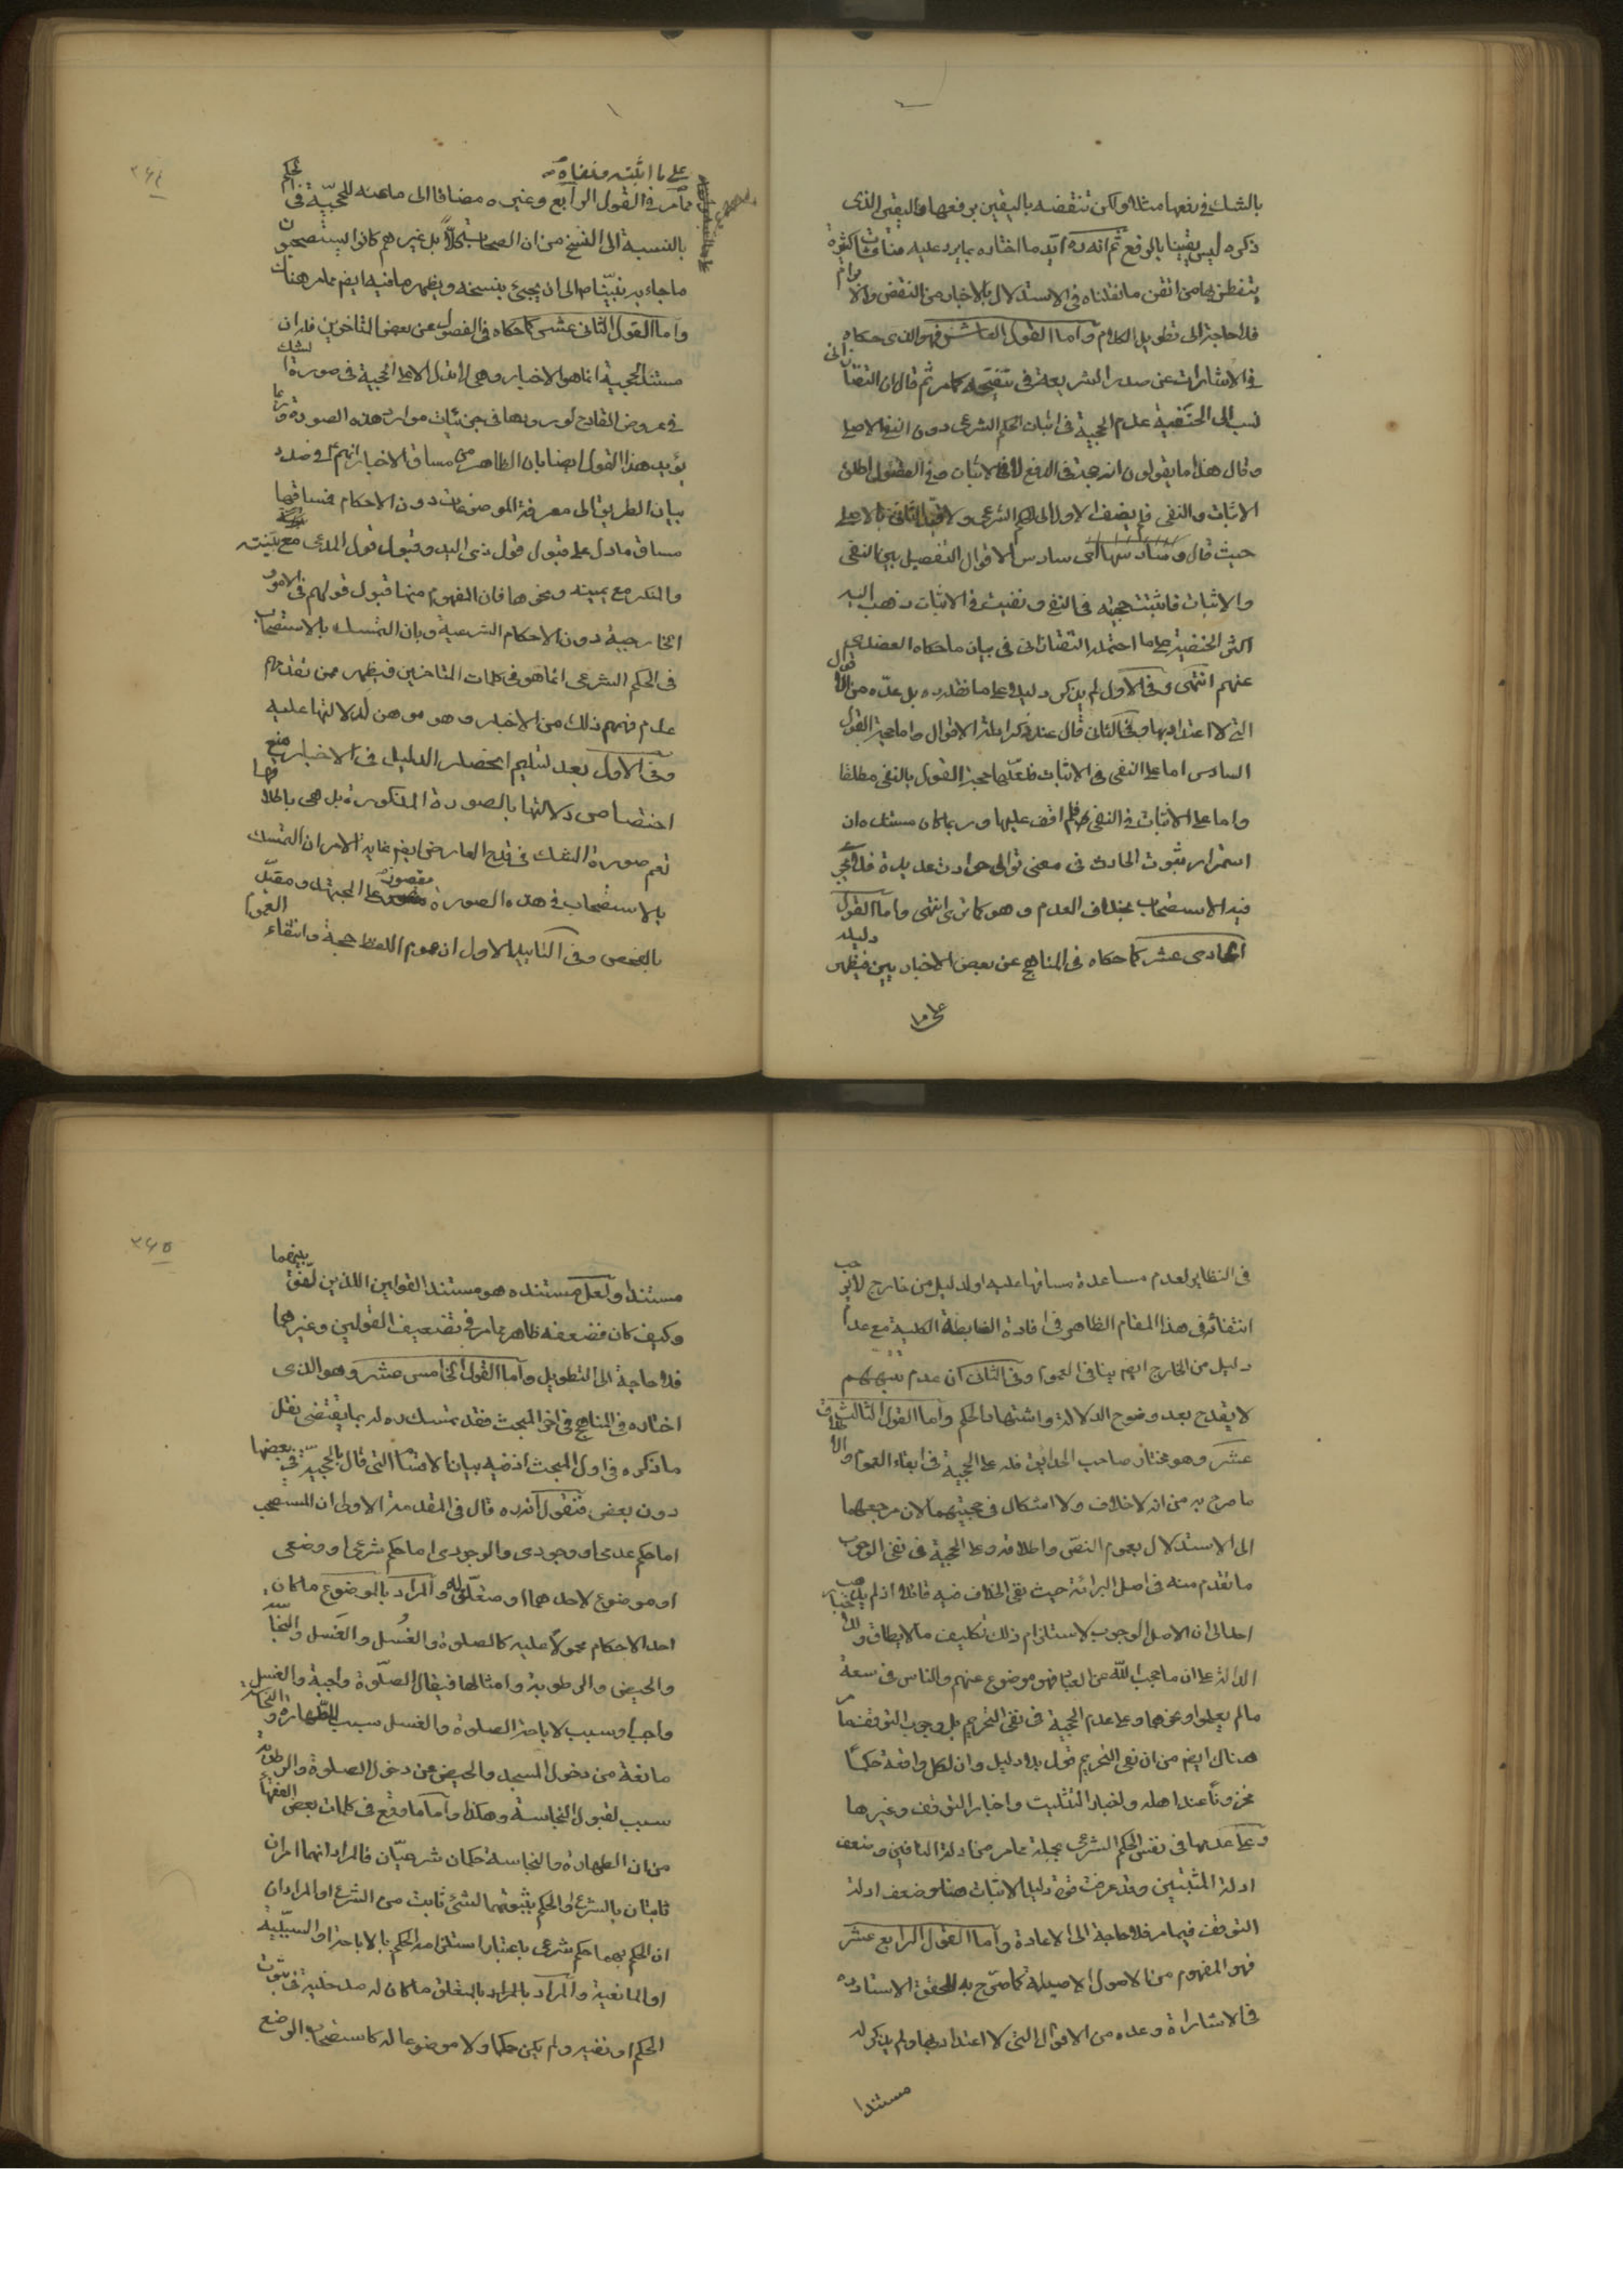 بالشك في رفعها مثلا ولكن تنقضه باليقين برفعها واليقين الذى
ذكره ليس يقينا بالرفع ثم انه ره ايد ما اختاره بما يرد عليه مناقشات كثيرة
يتفطن بها من اتقن ما نقلناه في الاستدلال بالاخبار من النقض والابرام
فلا حاجة الى تطويل الكلام واما القول العاشر فهو الذى حكاه
في الاشارات عن صدر الشريعة في تنقيحه كما مر ثم قال ان التفتازانى
نسب الى الحنفية عدم الحجية في اثبات الحكم الشرعى دون النفى الاصلى
وقال هذا ما يقولون انه حجة في الدفع لا في الاثبات وفي الفصول اطلق
الاثبات والنفى فلم يضف الاول الى الحكم الشرعى ولا قيد الثانى بالاصلى
حيث قال وسادسها اى سادس الاقوال التفصيل بين النفى
والاثبات فاثبتت حجيته في النفى ونفيت في الاثبات ذهب اليه
اكثر الحنفية على ما احتمله التفتازانى في بيان ما حكاه العضدى
عنهم انتهى وفي الاول لم يذكر دليلا على ما نقله ره بل عده من الاقوال
التى لا اعتداد بها وفي الثانى قال عند ذكر ادلة الاقوال واما حجة القول
السادس اما على النفى في الاثبات فلعلها حجة القول بالنفى مطلقا
واما على الاثبات في النفى فلم اقف عليها وربما كان مستنده ان
استمرار ثبوت الحادث في معنى توالى حوادث عديدة فلا يجرى
فيه الاستصحاب بخلاف العدم وهو كما ترى انتهى واما القول
الحادى عشر كما حكاه في المناهج عن بعض الاخباريين فيظهر دليله
على ما
على ما اثبته ونفاه
مما مر في القول الرابع وغيره مضافا الى ما عنه للحجية في الحكم
بالنسبة الى النسخ من ان الصحابة بل غيرهم كانوا يستصحبون
ما جاء به نبينا ص الى ان يجئ بنسخه ويظهر ما فيه ايضم مما مر هناك
واما القول الثانى عشر كما حكاه في الفصول عن بعض المتاخرين فلان
مستند الحجية انما هو الاخبار وهى لا تدل الا على الحجية في صورة الشك
في عروض القادح لورودها في جزئيات موارد هذه الصورة وربما
يؤيد هذا القول ايضا بان الظاهر من مساق الاخبار انهم ع في صدد
بيان الطريق الى معرفة الموضوعات دون الاحكام فمساقها
مساق ما دل على قبول قول ذى اليد وقبول قول المدعى مع بينته
والمنكر مع يمينه ونحوها فان المفهوم منها قبول قولهم في الامور
الخارجية دون الاحكام الشرعية وبان التمسك بالاستصحاب
في الحكم الشرعى انما هو في كلمات المتاخرين فيظهر ممن تقدمهم
عدم فهمهم ذلك من الاخبار وهو موهن لدلالتها عليه
وفي الاول بعد تسليم انحصار الدليل في الاخبار منع
اختصاص دلالتها بالصورة المذكورة بل هى باطلاقها
تعم صورة الشك في قدح العارض ايضم غاية الامر ان التمسك
بالاستصحاب في هذه الصورة مقصور على المجتهد ومقيد
بالفحص وفي التاييد الاول ان عموم اللفظ حجة وانتفاء العموم
في النظاير لعدم مساعدة مساقها عليه او لدليل من خارج لا يوجب
انتفائه في هذا المقام الظاهر في افادة الضابطة الكلية مع عدم
دليل من الخارج ايضم ينافى العموم وفي الثانى ان عدم تنبههم
لا يقدح بعد وضوح الدلالة واشتهار الحكم واما القول الثالث
عشر وهو مختار صاحب الحدائق فله على الحجية في ابقاء العموم والاطلاق
ما صرح به من انه لا خلاف ولا اشكال في حجيتهما لان مرجعهما
الى الاستدلال بعموم النص واطلاقه وعلى الحجية في نفى الوجوب
ما تقدم منه في اصل البرائة حيث نفى الخلاف فيه قائلا اذ لم يذهب
احد الى ان الاصل الوجوب لاستلزام ذلك تكليف ما لا يطاق وللاخبار
الدالة على ان ما حجب الله عن العباد فهو موضوع عنهم والناس في سعة
ما لم يعلموا ونحوهما وعلى عدم الحجية في نفى التحريم بل وجوب التوقف ما مر
هناك ايضم من ان نفى التحريم قول بلا دليل وان لكل واقعة حكما
مخزونا عند اهله ولخبار التثليث واخبار التوقف وغيرها
وعلى عدمها في نفس الحكم الشرعى بجملة مما مر من ادلة النافين وضعف
ادلة المثبتين وقد عرفت قوة دليل الاثبات هنا وضعف ادلة
التوقف فيما مر فلا حاجة الى الاعادة واما القول الرابع عشر
فهو المفهوم من الاصول الاصيلة كما صرح به المحقق الاستاد ره
في الاشارات وعده من الاقوال التى لا اعتداد بها ولم يذكر له
مستندا
مستندا ولعل مستنده هو مستند القولين اللذين لفق بينهما
وكيف كان فضعفه ظاهر مما مر في تضعيف القولين وغيرهما
فلا حاجة الى التطويل واما القول الخامس عشر وهو الذى
اختاره في المناهج في اخر المبحث فقد تمسك ره له بما يقتضى نقل
ما ذكره في اول المبحث اذ فيه بيان الاقسام التى قال بالحجية في بعضها
دون بعض فنقول انه ره قال في المقدمة الاولى ان المستصحب
اما حكم عدمى او وجودى والوجودى اما حكم شرعى او وضعى
او موضوع لاحدهما او متعلق له والمراد بالموضوع ما كان
احد الاحكام محمولا عليه كالصلوة والغسل والغسل والنجاسة
والحيض والرطوبة وامثالها فيقال الصلوة واجبة والغسل
واجب او سبب لاباحة الصلوة والغسل سبب للطهارة والنجاسة
مانعة من دخول المسجد والحيض من دخول الصلوة والرطوبة
سبب لقبول النجاسة وهكذا واما ما وقع في كلمات بعض الفقهاء
من ان الطهارة والنجاسة حكمان شرعيان فالمراد انهما امران
ثابتان بالشرع او الحكم بثبوتهما لشئ ثابت من الشرع او المراد ان
ان الحكم بهما حكم شرعى باعتبار استلزامه الحكم بالاباحة او السببية
او المانعية والمراد بالمراد بالمتعلق ما كان له مدخلية في ثبوت
الحكم او نفيه ولم يكن حكما ولا موضوعا له كاستصحاب الوضع